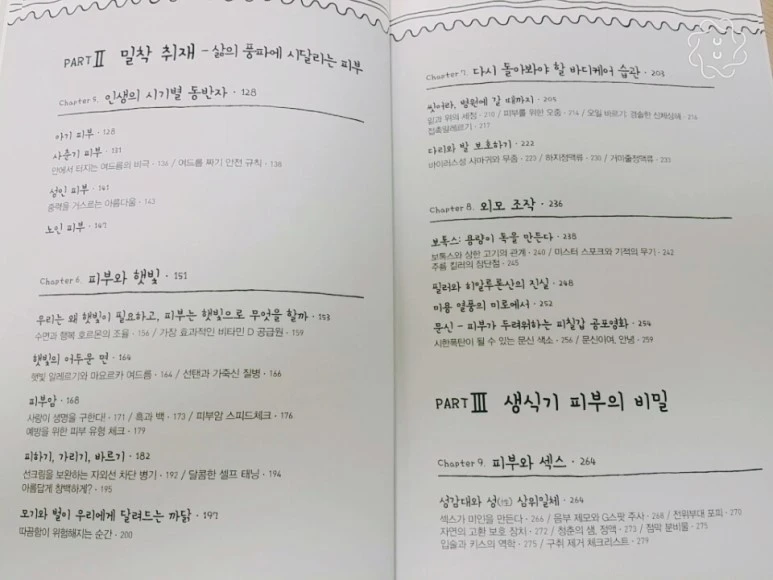 PART Ⅱ 밀착 취재 - 삶의 풍파에 시달리는 피부
Chapter 5. 인생의 시기별 동반자 · 128
아기 피부 · 128
사춘기 피부 · 131
안에서 터지는 여드름의 비극 · 136 / 여드름 짜기 안전 규칙 · 138
성인 피부 · 141
중력을 거스르는 아름다움 · 143
노인 피부 · 147
Chapter 6. 피부와 햇빛 · 151
우리는 왜 햇빛이 필요하고, 피부는 햇빛으로 무엇을 할까 · 153
수면과 행복 호르몬의 조율 · 156 / 가장 효과적인 비타민 D 공급원 · 159
햇빛의 어두운 면 · 164
햇빛 알레르기와 마요르카 여드름 · 164 / 선탠과 가죽신 질병 · 166
피부암 · 168
사랑이 생명을 구한다! · 171 / 흑과 백 · 173 / 피부암 스피드체크 · 176
예방을 위한 피부 유형 체크 · 179
피하기, 가리기, 바르기 · 182
선크림을 보완하는 자외선 차단 병기 · 192 / 달콤한 셀프 태닝 · 194
아름답게 창백하게? · 195
모기와 벌이 우리에게 달려드는 까닭 · 197
따끔함이 위험해지는 순간 · 200
Chapter 7. 다시 돌아봐야 할 바디케어 습관 · 203
씻어라, 병원에 갈 때까지 · 205
밑과 위의 세정 · 210 / 피부를 위한 오줌 · 214 / 오일 바르기, 경솔한 신체상해 · 216
접촉알레르기 · 217
다리와 발 보호하기 · 222
바이러스성 사마귀와 무좀 · 223 / 하지정맥류 · 230 / 거미출정맥류 · 233
Chapter 8. 외모 조작 · 236
보톡스: 용량이 독을 만든다 · 238
보톡스와 상한 고기의 관계 · 240 / 미스터 스포크와 기적의 무기 · 242
주름 킬러의 장단점 · 245
필러와 히알루론산의 진실 · 248
미용 열풍의 미로에서 · 252
문신 - 피부가 두려워하는 피칠갑 공포영화 · 254
시한폭탄이 될 수 있는 문신 색소 · 256 / 문신이여, 안녕 · 259
PART Ⅲ 생식기 피부의 비밀
Chapter 9. 피부와 섹스 · 264
성감대와 성(性) 삼위일체 · 264
섹스가 미인을 만든다 · 266 / 음부 제모와 G스팟 주사 · 268 / 전위부대 포피 · 270
자연의 고환 보호 장치 · 272 / 청춘의 샘, 정액 · 273 / 점막 분비물 · 275
입술과 키스의 역학 · 275 / 구취 제거 체크리스트 · 279